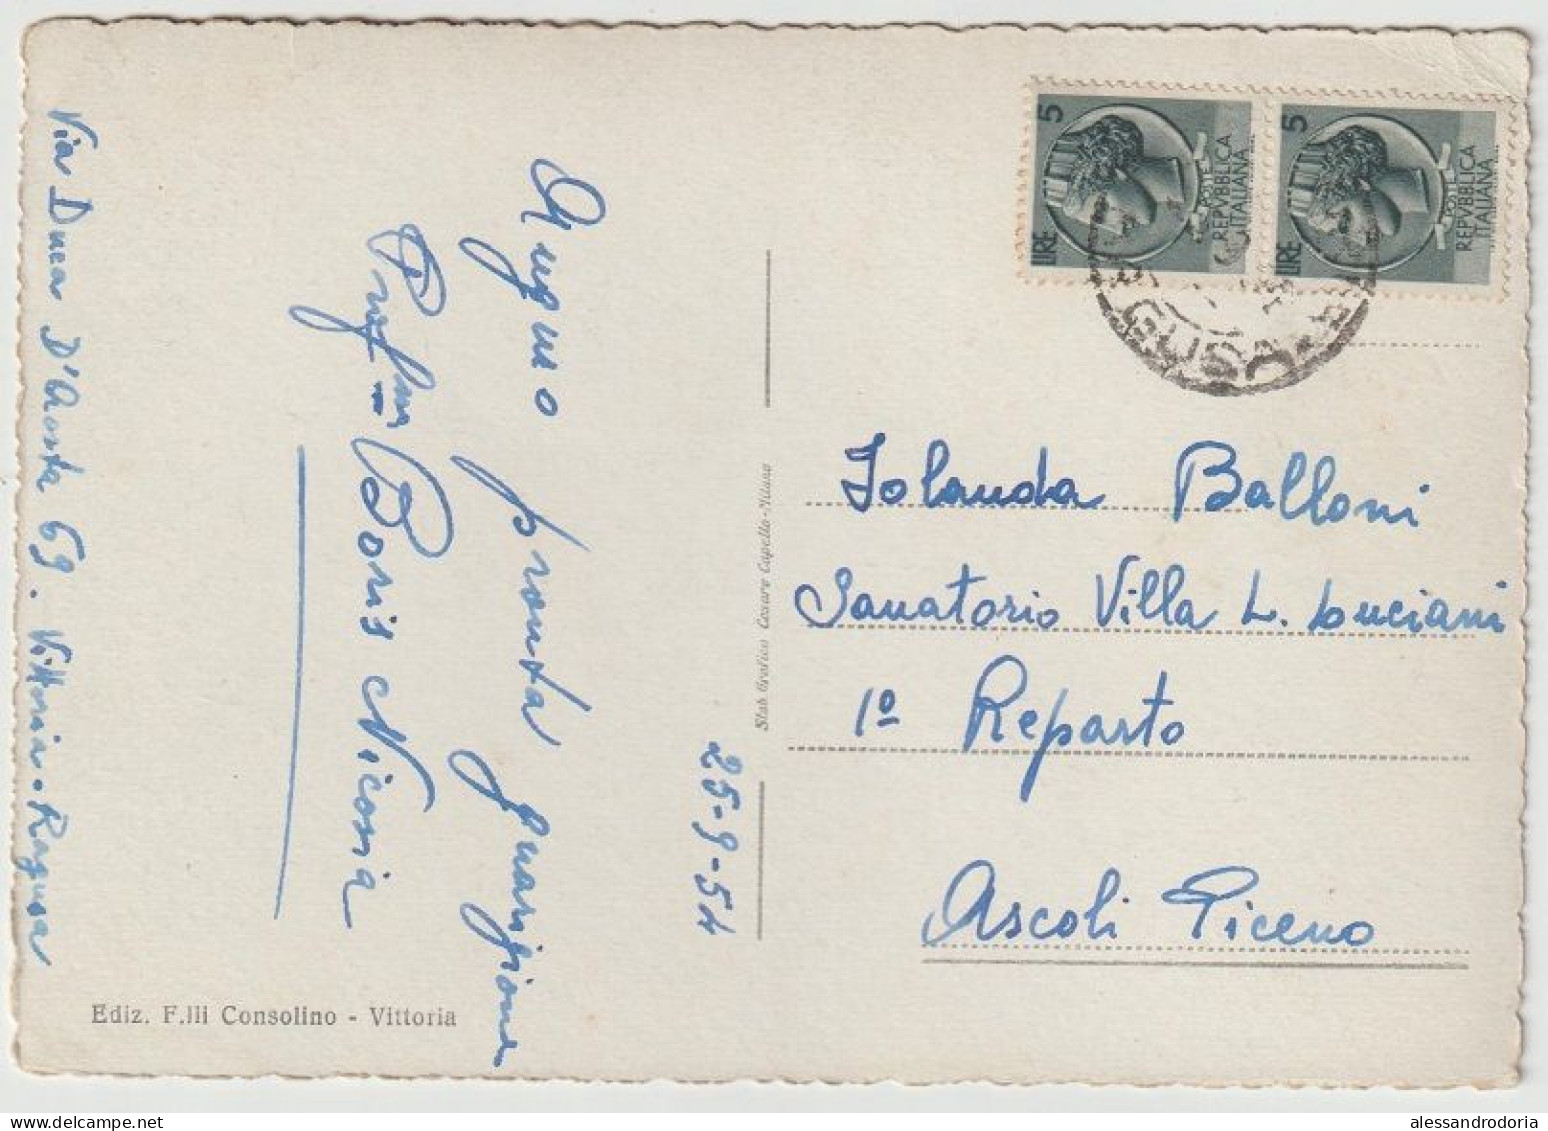 Auguro pronta guarigione
Prof. Boris Nicosia
Via Duca D'Aosta 69. Vittoria. Ragusa
25-9-54
Ediz. F.lli Consolino - Vittoria
Stab. Grafico Cesare Capello-Milano
LIRE 5
POSTE
REPVBBLICA
ITALIANA
LIRE 5
POSTE
REPVBBLICA
ITALIANA
Iolanda Balloni
Sanatorio Villa L. Luciani
1º Reparto
Ascoli Piceno
alessandrodoria